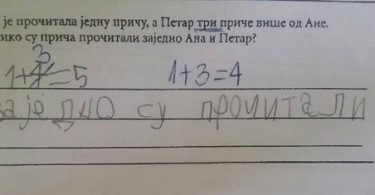 је прочитала једну причу, а Петар три приче више од Ане.
ико су прича прочитали заједно Ана и Петар?
3
1+4=5 1+3=4
заједно су прочитали